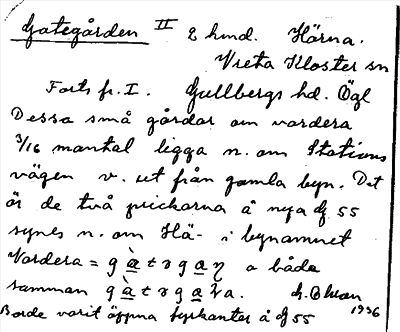 Gategården II 2 hmd. Härna.
Vreta Kloster sn
Forts fr. I. Gullbergs hd. Ögl
Dessa små gårdar om vardera
3/16 mantal ligga n. om Stations
vägen v. ut från gamla byn. Det
är de två prickarna å nya df 55
synes n. om Hä- i bynamnet
Vardera = g a t r g a η a båda
samman g a t r g a a.
1936
Borde varit öppna fyrkanter å df 55